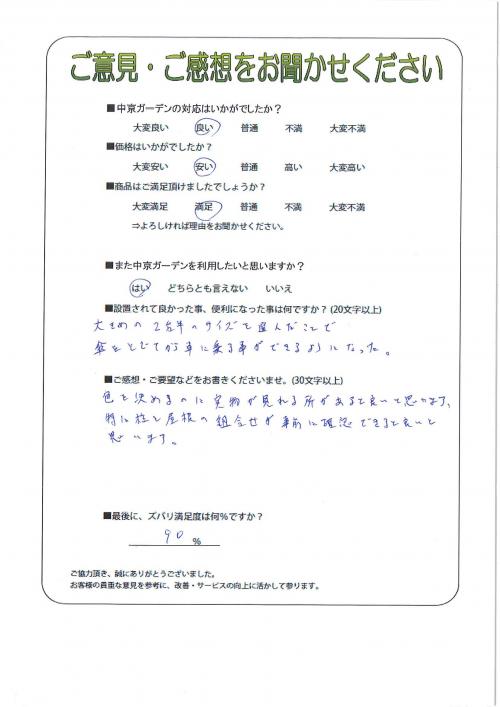 ご意見・ご感想をお聞かせください
■中京ガーデンの対応はいかがでしたか？
大変良い 良い 普通 不満 大変不満
■価格はいかがでしたか？
大変安い 安い 普通 高い 大変高い
■商品はご満足頂けましたでしょうか？
大変満足 満足 普通 不満 大変不満
⇒よろしければ理由をお聞かせください。
■また中京ガーデンを利用したいと思いますか？
はい どちらとも言えない いいえ
■設置されて良かった事、便利になった事は何ですか？(20文字以上)
大きめの2台半のサイズを選んだことで
傘をとじてから車に乗る事ができるようになった。
■ご感想・ご要望などをお書きくださいませ。(30文字以上)
色を決めるのに実物が見れる所があると良いと思います、
特に柱と屋根の組合せが事前に確認できると良いと
思います。
■最後に、ズバリ満足度は何％ですか？
90 %
ご協力頂き、誠にありがとうございました。
お客様の貴重な意見を参考に、改善・サービスの向上に活かして参ります。